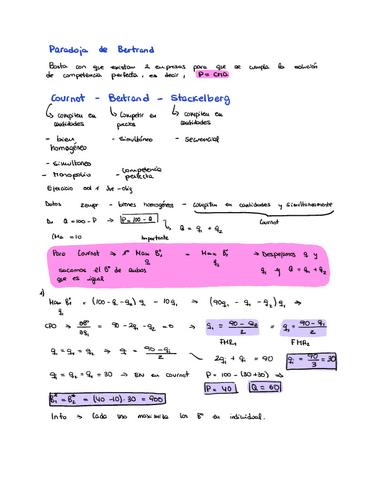 Paradoja de Bertrand
Basta con que existan 2 empresas para que se cumpla la solución
de competencia perfecta, es decir, P = CMA
Cournot - Bertrand - Stackelberg
↳ compiten en cantidades
↳ Competir en precios
↳ compiten en cantidades
- bien homogéneo
- simultáneo
- secuencial
- simultaneo
- Monopolio
- Competencia perfecta
Ejercicio
Datos 2 empr - bienes homogéneos - compiten en cantidades y simultáneamente
Cournot
Du Q = 100 - P → P = 100 - Q
↳ Q = q₁ + q₂
CMa = 10
Importante
Para Cournot → 1º Max B₁ = Max B₂ → Despejamos q y
q₁ q₂
sacamos el Bº de ambos
q₁ y Q = q₁ + q₂
que es igual
1)
Max B₁ = (100 - q₁ - q₂) q₁ - 10q₁ → (90q₁ - q₁ - q₂) q₁ →
q₁
CPO → ∂B/∂q₁ = 90 - 2q₁ - q₂ = 0 → q₁ = (90 - q₂)/2 = q₂ = (90 - q₁)/2
FMR₁ FMR₂
q₁ = q₁ = q₂ → q₁ = (90 - q₁)/2
2q₁ + q₁ = 90 q₁ = 90/3 = 30
q₁ = q₁ = q₂ = 30 → EN en cournot P = 100 - (30 + 30) →
P = 40 Q = 60
B₁* = B₂* = (40 - 10) · 30 = 900
Info → Cada uno maximiza los Bº en individual.